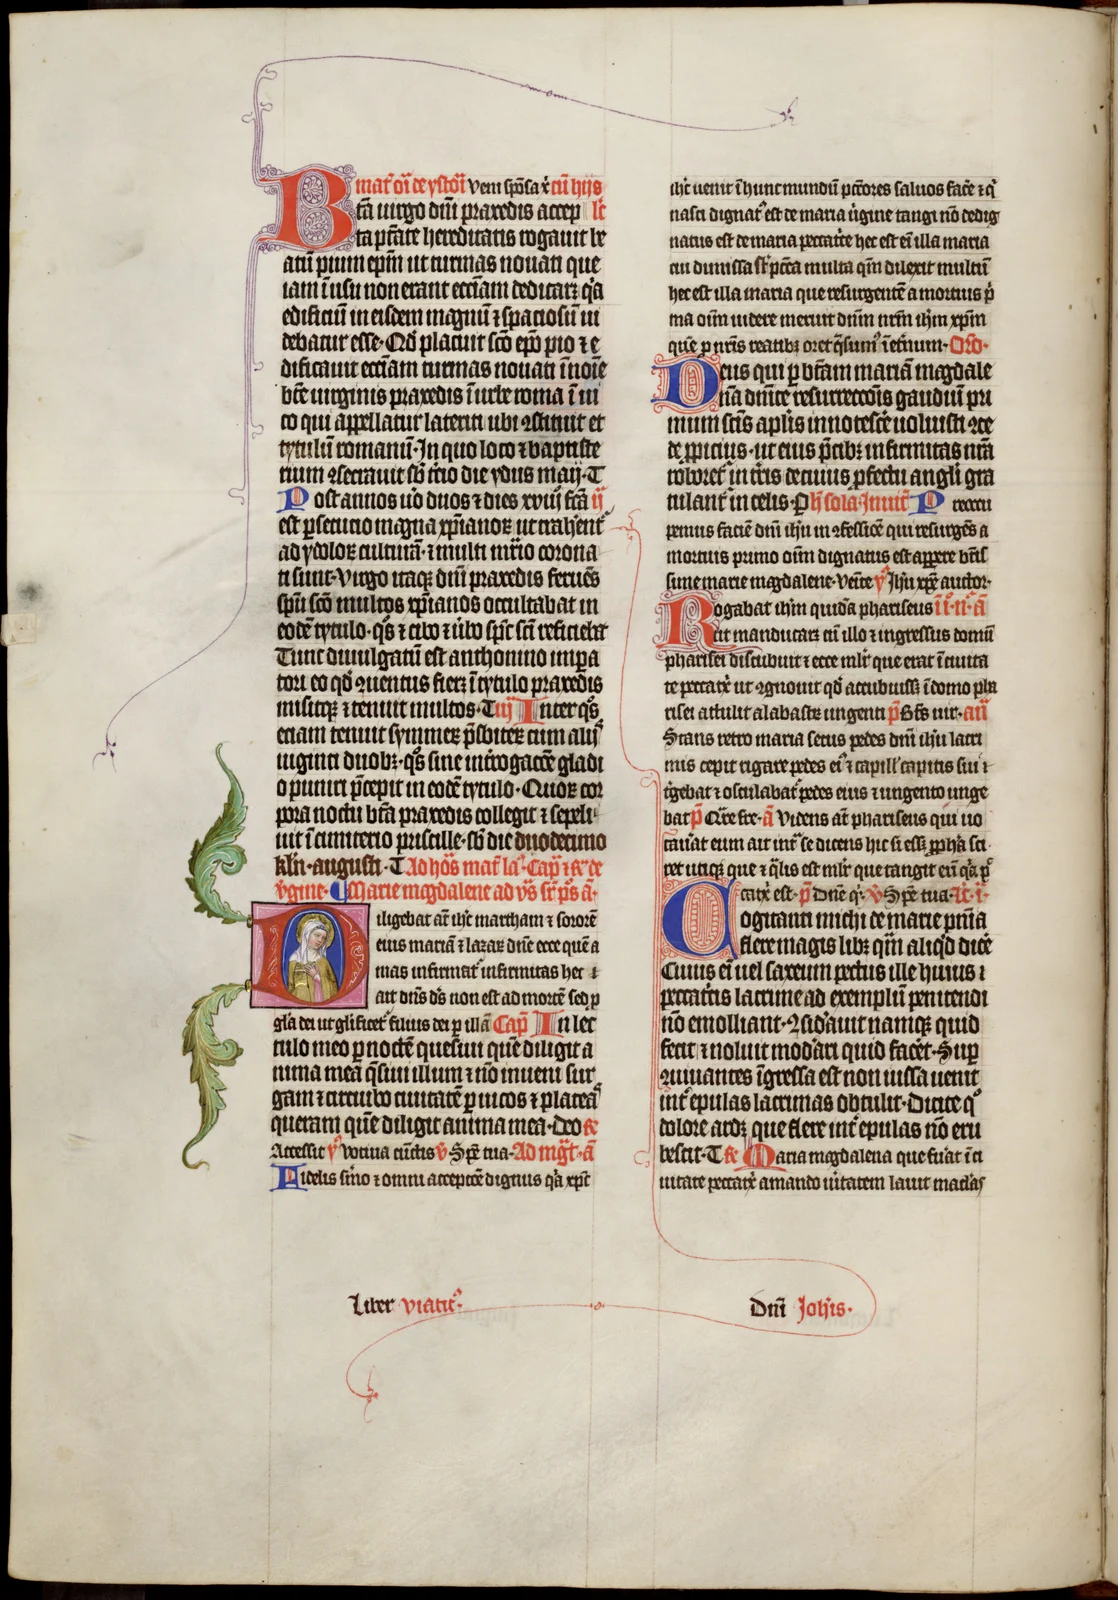 Bmat᷑ oı̄ de ystoı̄ Veni spōsa x̄ cū hijs
tā uirgo dūi praxedis accep lc̄
ta ptāte hereditatis rogauit be
atū pium ep̄m ut turmas nouati que
iam ī usu non erant ecc̄iam dedicarꝫ q̄a
edificiū in eisdem magnū ⁊ spaciosū ui
debatur esse· Qd̄ placuit sc̄o ep̄o pio ⁊ e
dificauit ecc̄iam turmas nouati ī noı̄e
btē uirginis praxedis ī urbe roma ī ui
co qui appellatur laterici ubi ꝯstituit et
tytulū romanū· In quo loco ⁊ baptiste
rium ꝯsecrauit sb̄ t̄cio die ydus maij· T
Post annos u̾o duos ⁊ dies xviij fc̄a ij
est ꝑsecucio magna xp̄ianoꝝ ut trahēnt᷑
ad ydoloꝝ culturā· ⁊ multi mr̄io corona
ti sunt· Virgo itaqꝫ dūi praxedis feruēs
spū sc̄o multos xp̄ianos occultabat in
eodē tytulo· q̄s ⁊ cibo ⁊ ūbo spc̄ sc̄i reficiebat
Tunc diuulgatū est anthonino impa
tori eo qd̄ ꝯuentus fierꝫ ī tytulo praxedis
misitqꝫ ⁊ tenuit multos· T iij Inter q̄s
eciam tenuit symmeꝝ p̄sbiteꝝ cum alijs
uiginti duobꝫ· q̄s sine int̾rogacōe gladi
o puniri p̄cepit in eodē tytulo· Quoꝝ cor
pora noctu bt̄a praxedis collegit ⁊ sepeli
uit ī cimiterio priscille· sb̄ die duodecimo
kl̄n· augusti· T Ad hōs mat᷑ la᷑· Cap̄ ⁊ ꝶ de
v̾gine· Marie magdalene ad vs̄ sr̄ ps̄ ā·
Diligebat aūt ih̄c martham ⁊ sororē
eius mariā ⁊ lazaꝝ dn̄e ecce quē a
mas infirmat᷑ infirmitas hec ⁊
ait dn̄s ds̄ non est ad mortē sed ꝓ
gl̄a dei ut gl̄ificet᷑ filius dei ꝑ illā Cap̄ In lec
tulo meo ꝑ noctē quesiui quē diligit a
nima mea q̄siui illum ⁊ nō inueni sur
gam ⁊ circuibo ciuitatē ꝑ uicos ⁊ plateas
queram quē diligit anima mea· Deo ꝶ
Accessit ꝟ votiua cūctis ꝟ Spē tua· Ad mgt̄· ā
Fidelis s̾mo ⁊ omni accepcōe dignus q̄a xp̄c
ih̄c uenit ī hunc mundū pctōres saluos facē ⁊ q̄
nasci dignat᷑ est de maria ūgine tangi nō dedig
natus est de maria peccatͥce hec est eī illa maria
cui dimissa sūt pctā multa qm̄ dilexit multū
hec est illa maria que resurgentē a mortuis p̄
ma oīm uidere meruit dūm nrm̄ ih̄m xp̄m
quē ꝓ nr̄is reatibꝫ oret q̄sum᷒ ī et̾num· Oro·
Deus qui ꝑ btām mariā magdale
nā dīuīce resurrecōis gaudiū pri
mum sc̄is aplīs innotesc̾e uoluisti ꝯce
de ꝓpicius· ut eius p̄cibꝫ infirmitas nrā
roboret᷑ in t̾ris de cuius ꝑfectu angl̄i gra
tulant᷑ in celis· P h̄ sola· Inuit᷑ Preoccu
pemus faciē dūi ih̄u in ꝯfessiōe qui resurgēs a
mortuis primo oīm dignatus est apꝑere btīs
sime marie magdalene· Veīte ꝟ Ih̄u xp̄e auctor·
Rogabat ih̄m quidā phariseus ī ī· n· ā
ut manducarꝫ cū illo ⁊ ingressus domū
pharisei discubuit ⁊ ecce ml̄r que erat ī ciuita
te peccat̾x ut ꝯgnouit qd̄ accubuissꝫ ī domo pha
risei attulit alabastꝝ ungenti p̄ Bt̄s uir· aīi
Stans retro maria secus pedes dūi ih̄u lacri
mis cepit rigare pedes ei᷒ ⁊ capill᷑ capitis sui ⁊
t̾gebat ⁊ osculabat᷑ pedes eius ⁊ ungento unge
bat p̄ Qͣre fre· ā Videns aūt phariseus qui uo
cau̾at eum ait int̾ se dicens hic si essꝫ ꝓph̄a sci
ret utiqꝫ que ⁊ q̄lis est ml̄r que tangit eū q̄a p̄
catͥx est· p̄ Dn̄e q̄· ꝟ Spē tua· lc̄· i·
Cogitanti michi de marie pnīa
flere magis libꝫ qm̄ aliqd̄ dic̾e
Cuius eī uel saxeum pectus ille huius ⁊
peccatͥcis lacrime ad exemplū penitendi
nō emolliant· ꝯsid̾auit namqꝫ quid
fecit ⁊ noluit mod̾ari quid fac̾et· Suꝑ
ꝯuiuantes īgressa est non iussa uenit
int̾ epulas lacrimas obtulit· Dicite q°
dolore ardꝫ que flere int̾ epulas nō eru
bescit· T ꝶ Maria magdalena que fu̾at ī ci
uitate peccatͥx amando ūitatem lauit maclas
Liber viatic᷒·
Dūi Joh̄is·